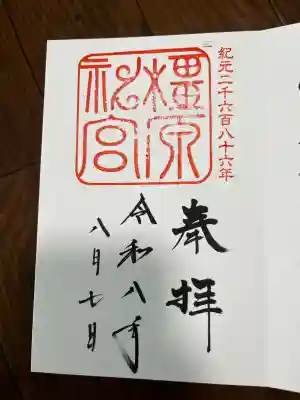 紀元二千六百八十六年
奉拝
橿原神宮
令和八年
八月七日